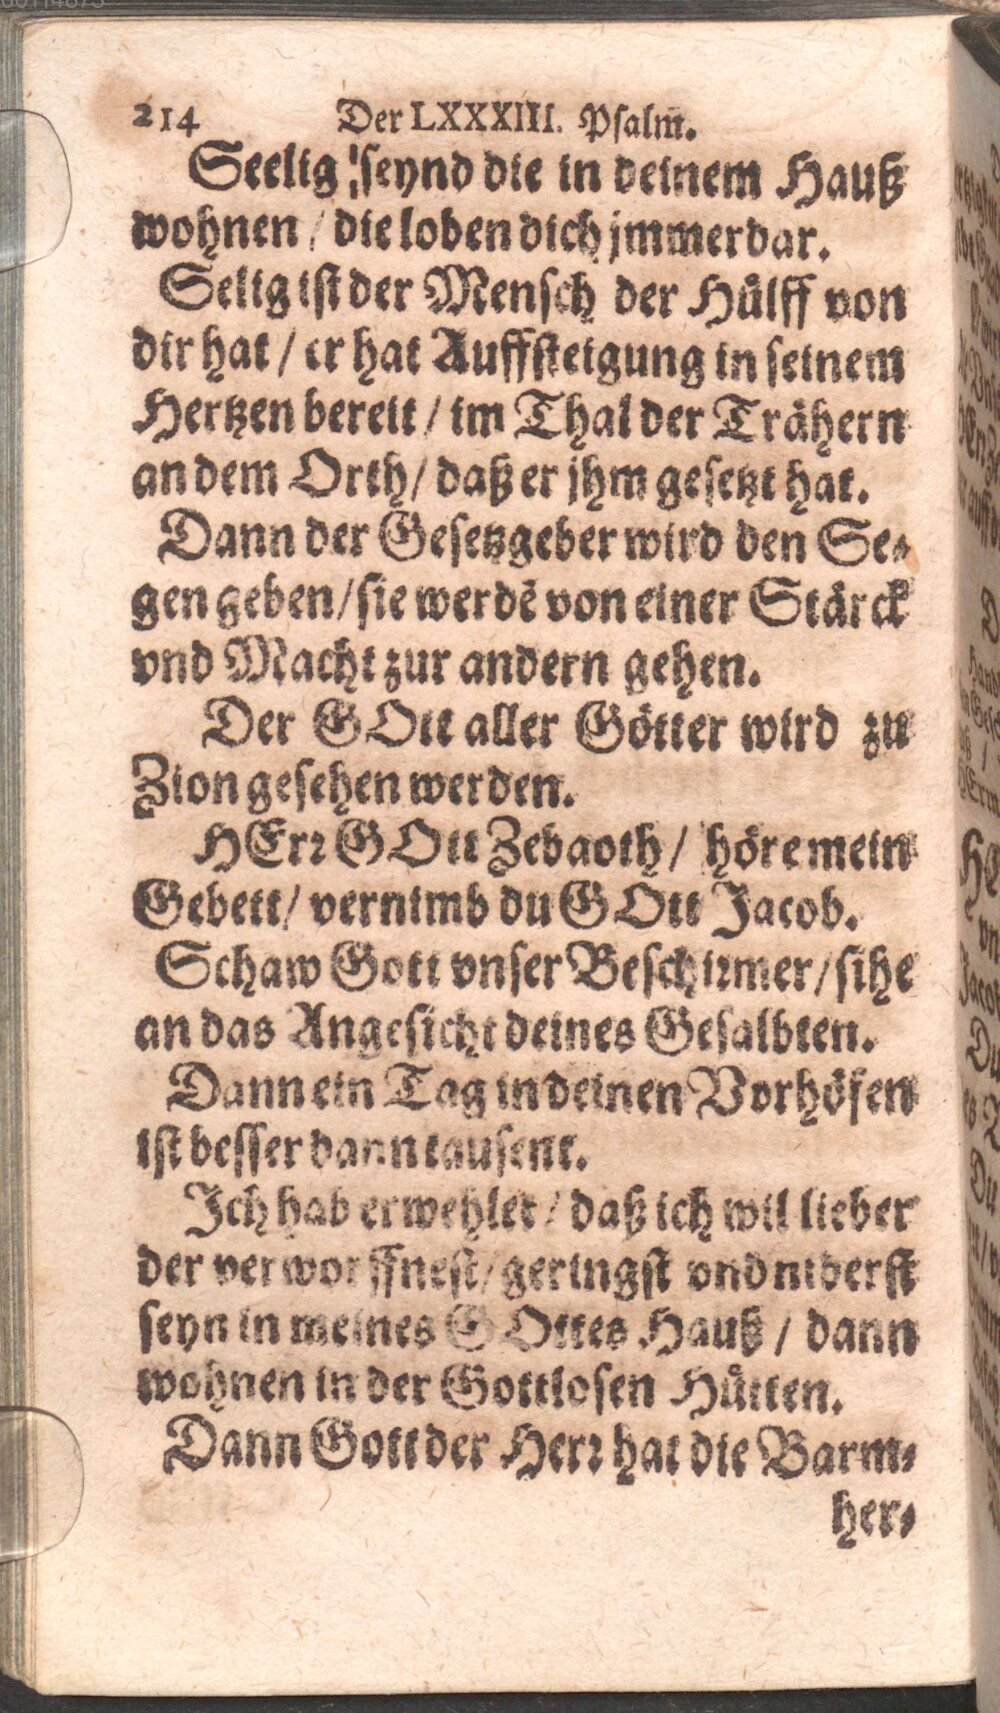 214 Der LXXXIII. Psalm.
Seelig seynd die in deinem Hauß
wohnen / die loben dich jmmerdar.
Selig ist der Mensch der Hůlff von
dir hat / er hat Auffsteigung in seinem
Hertzen bereit / im Thal der Trähern
an dem Orth / daß er jhm gesetzt hat.
Dann der Gesetzgeber wird den Se-
gen geben / sie werdē von einer Stärck
vnd Macht zur andern gehen.
Der GOtt aller Götter wird zu
Zion gesehen werden.
HErr GOtt Zebaoth / höre mein
Gebett / vernimb du GOtt Jacob.
Schaw Gott vnser Beschirmer / sihe
an das Angesicht deines Gesalbten.
Dann ein Tag in deinen Vorhöfen
ist besser dann tausent.
Ich hab erwehlet / daß ich wil lieber
der verworffnest / geringst vnd niderst
seyn in meines GOttes Hauß / dann
wohnen in der Gottlosen Hůtten.
Dann Gott der Herr hat die Barm-
her-